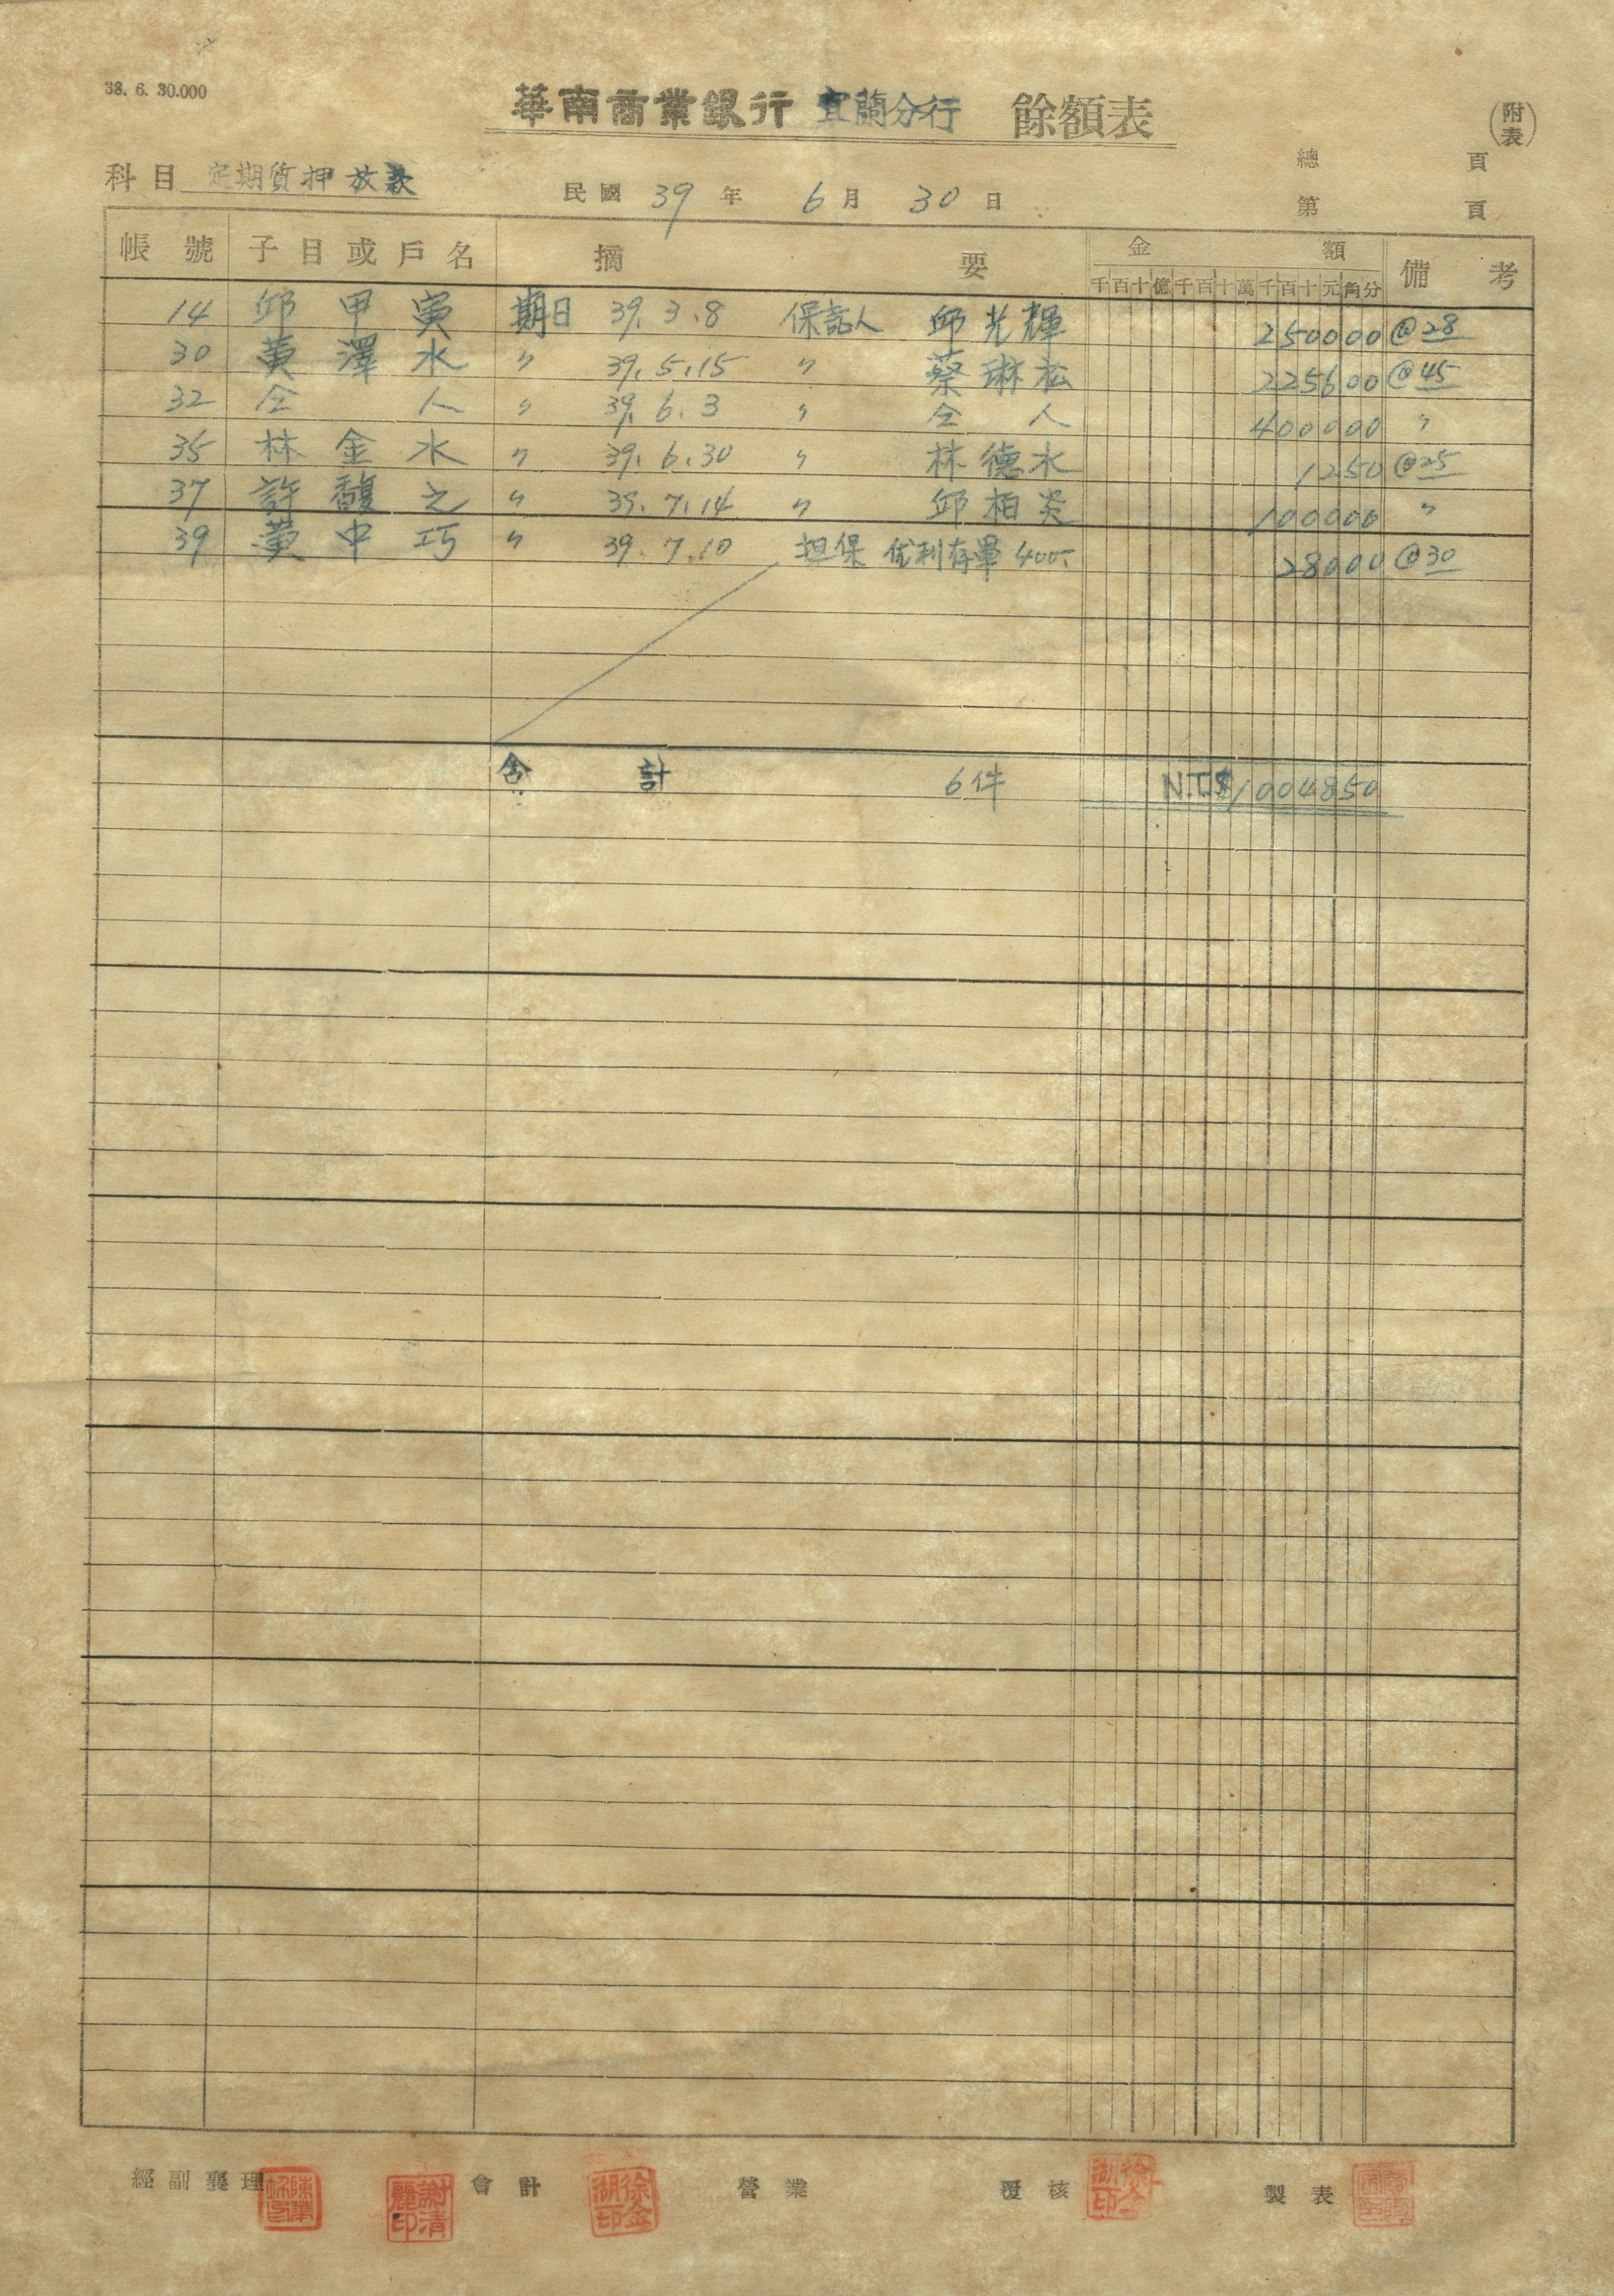 38. 6. 30.000
華南商業銀行 宜蘭分行 餘額表
(附表)
科目 定期質押放款
民國 39 年 6 月 30 日
總 頁
第 頁
帳號 子目或戶名 摘要 金額 備考
千百十億千百十萬千百十元角分
14 邱甲寅 期日 39.3.8 保証人 邱光輝 250000 @28
30 黃澤水 〃 39.5.15 〃 蔡琳松 225600 @45
32 仝人 〃 39.6.3 〃 仝人 400000 〃
35 林金水 〃 39.6.30 〃 林德水 1250 @25
37 許馥之 〃 39.7.14 〃 邱柏炎 100000 〃
39 黃中巧 〃 39.7.10 担保 优利存單 400.- 28000 @30
合計 6件 N.T.$1004850
經副襄理 會計 營業 覆核 製表
謝清麗印
徐金湖印
徐金湖印